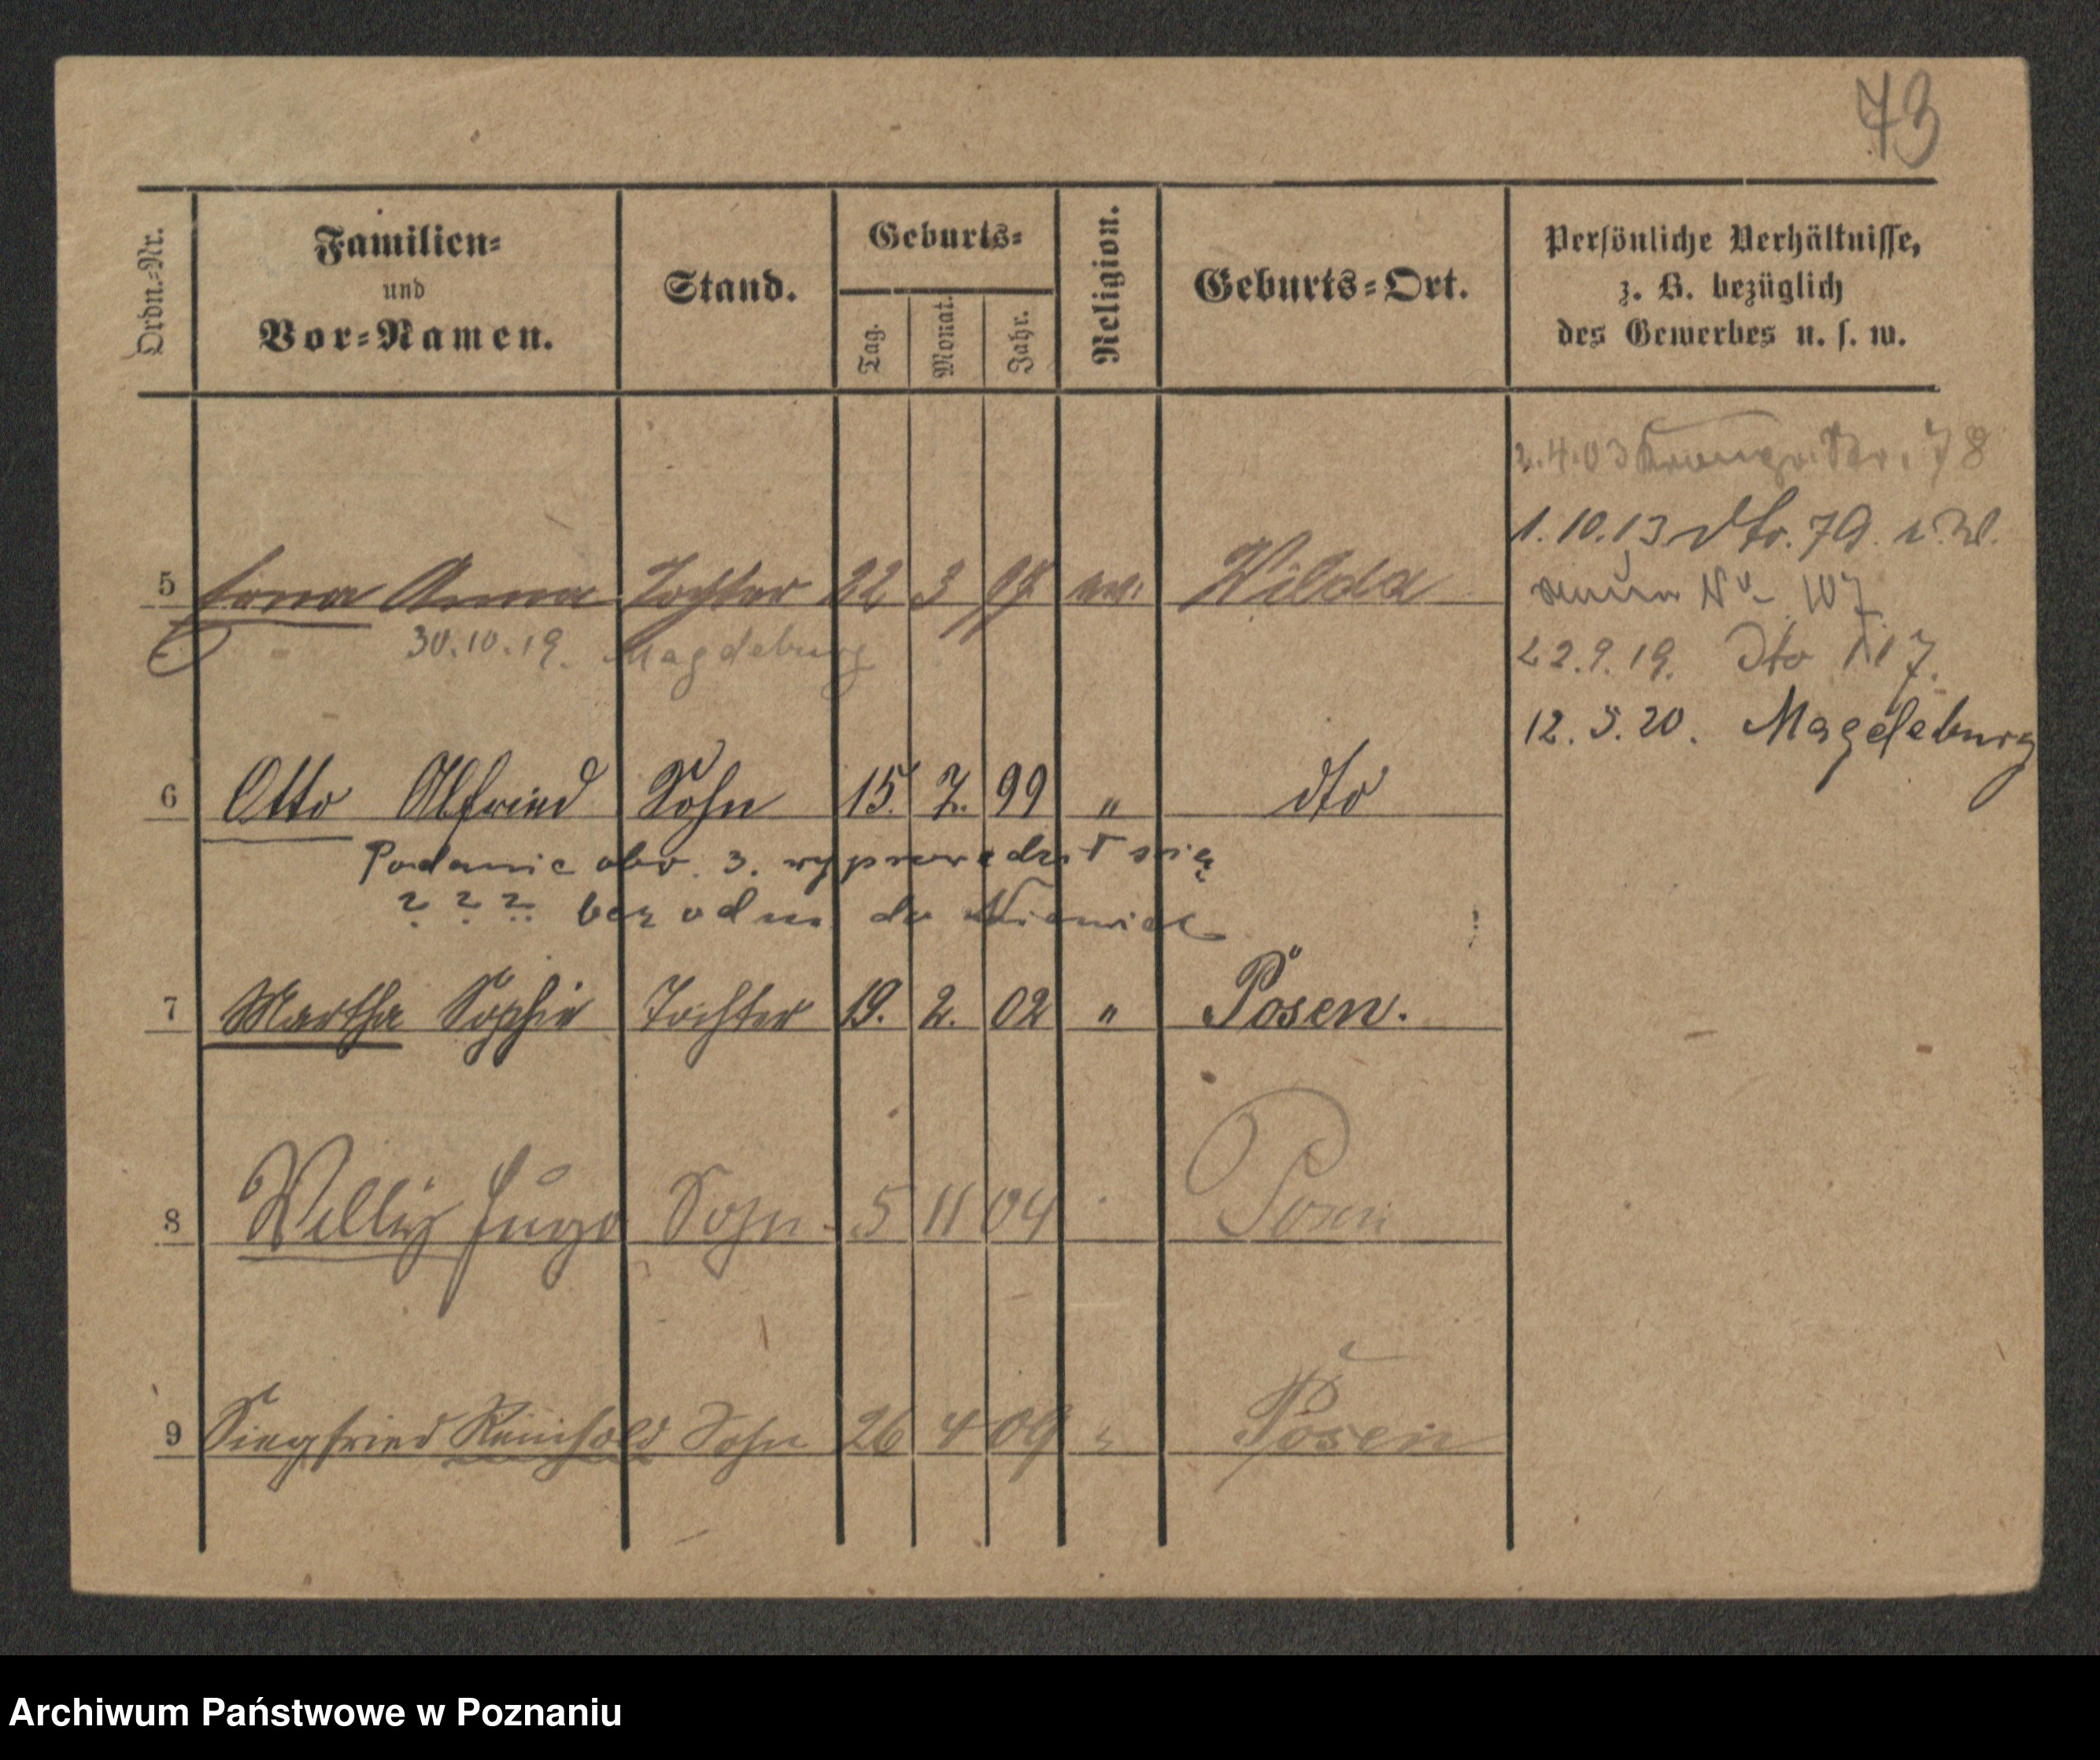 73
Ordn.-Nr.
Familien-
und
Vor-Namen.
Stand.
Geburts-
Tag.
Monat.
Jahr.
Religion.
Geburts-Ort.
Persönliche Verhältnisse,
z. B. bezüglich
des Gewerbes u. s. w.
2.4.03 Str. 78
1.10.13 dto. 79.
5 Anna Tochter 22 3 97 ev. Wilda
No 107
30.10.19. Magdeburg
22.9.19. dto 117.
12.5.20. Magdeburg
6 Otto Alfried Sohn 15. 7. 99 " dto
Podanie obv. 3. wyprowadził się
? ? ? bez odm. do Niemiec
7 Martha Sophie Tochter 19. 2. 02 " Posen.
8 Willy Hugo Sohn 5 11 04 Posen
9 Siegfried Reinhold Sohn 26 4 09 " Posen
Archiwum Państwowe w Poznaniu